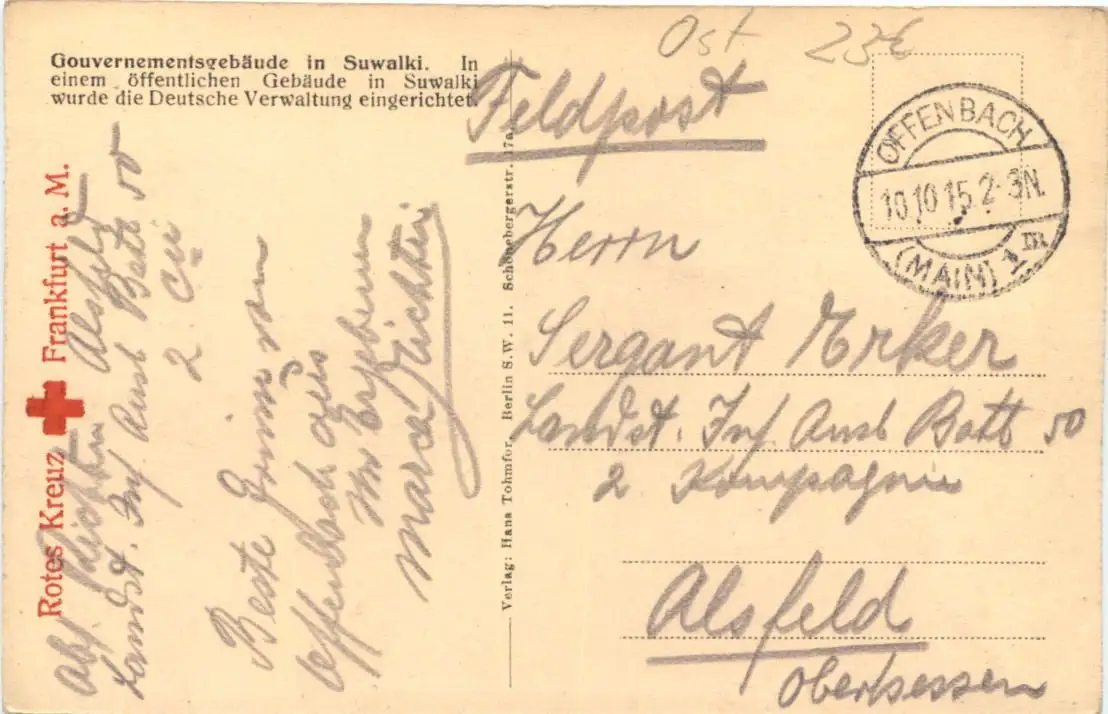 Gouvernementsgebäude in Suwalki. In
einem öffentlichen Gebäude in Suwalki
wurde die Deutsche Verwaltung eingerichtet.
Ost 23€
Feldpost
OFFENBACH
10.10.15.2-3N.
(MAIN) 1 III.
Herrn
Sergant Erker
Landst. Inf Ausb Batt 50
2. Kompagnie
Alsfeld
Oberhessen
Verlag: Hans Tohmfor, Berlin S.W. 11. Schönebergerstr. 17a.
Rotes Kreuz Frankfurt a. M.
Abs. Alsfeld
Landst. Inf Ausb Batt 50
2. Cie
Beste Grüsse von
Offenbach aus
Ihr Ergebener